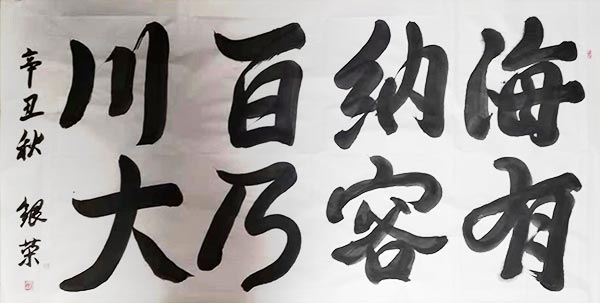 海纳百川
有容乃大
辛丑秋 银荣